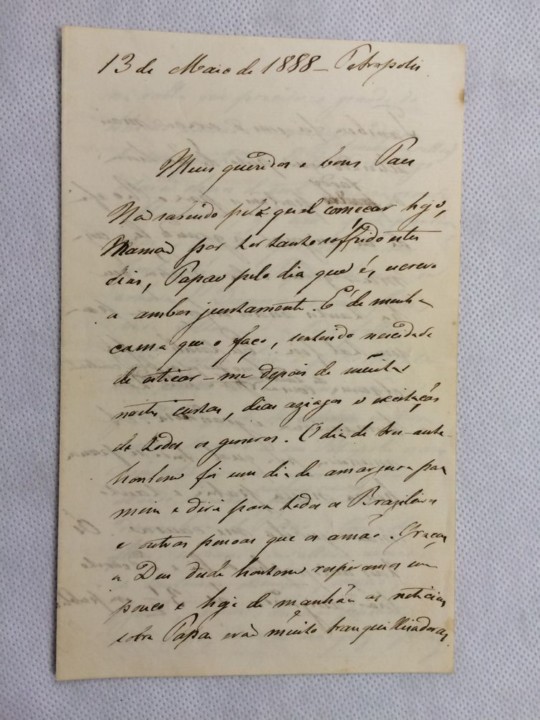 13 de Maio de 1888 – Petropolis
Meus queridos e bons Paes
Não sabendo por qual começar hoje,
Mamãe por ter tanto soffrido estes
dias, Papae pelo dia que é, escrevo
a ambos juntamente. É de minha
cama que o faço, sentindo necessidade
de esticar-me depois de muitas
noites curtas, dias aziagos e excitações
de todos os generos. O dia de trez-ante-
hontem foi um dia de amargura para
mim e direi para todos os Brasileiros
e outras pessoas que os amão. Graças
a Deus desde hontem respiramos um
pouco e hoje de manhãa as noticias
sobre Papae erão muito tranquillisadoras.